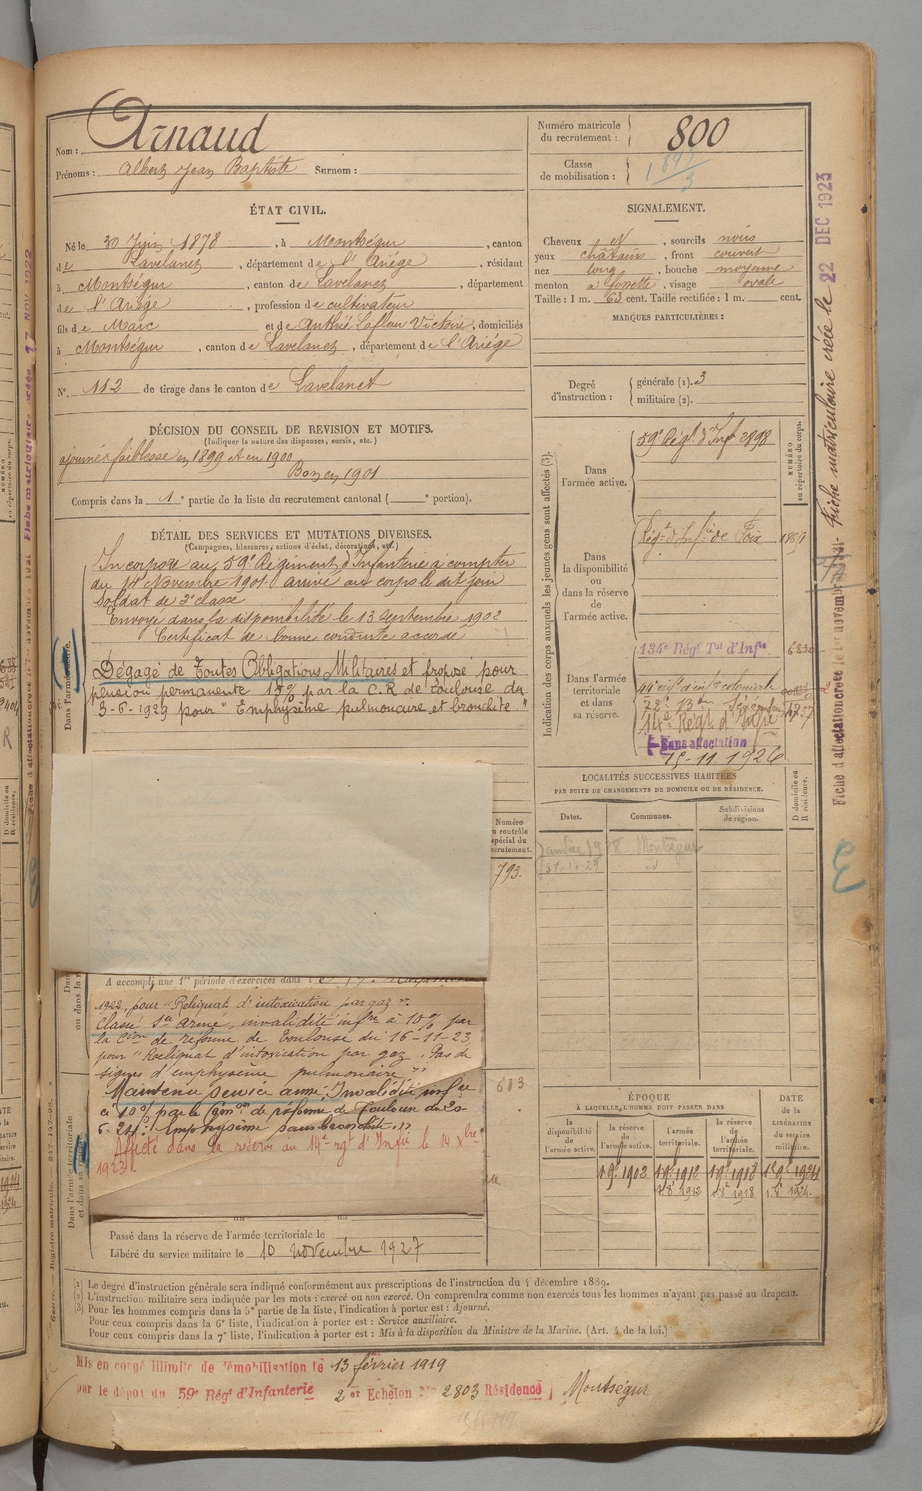 Nom : Arnaud
Prénoms : Albert Jean Baptiste Surnom :
Numéro matricule du recrutement : 800
Classe de mobilisation :
ÉTAT CIVIL.
Né le 30 Juin 1878, à Montségur, canton
de Lavelanet, département de l'Ariège, résidant
à Montségur, canton de Lavelanet, département
de l'Ariège, profession de cultivateur
fils de Marc et de Lafleur Victoire, domiciliés
à Montségur, canton de Lavelanet, département de l'Ariège
N° 112 de tirage dans le canton de Lavelanet
SIGNALEMENT.
Cheveux N, sourcils noirs
yeux châtains, front couvert
nez long, bouche moyenne
menton à fossette, visage ovale
Taille : 1 m. 63 cent. Taille rectifiée : 1 m. cent.
MARQUES PARTICULIÈRES :
Degré d'instruction : générale (1). 3
militaire (2).
DÉCISION DU CONSEIL DE REVISION ET MOTIFS.
(Indiquer la nature des dispenses, sursis, etc.)
ajourné faiblesse en 1899 et en 1900
Bon en 1901
Compris dans la 1e partie de la liste du recrutement cantonal ( e portion).
DÉTAIL DES SERVICES ET MUTATIONS DIVERSES.
(Campagnes, blessures, actions d'éclat, décorations, etc.)
Incorporé au 59e Régiment d'Infanterie à compter
du 14 Novembre 1901 arrivé au corps le dit jour
Soldat de 2e classe
Envoyé dans la disponibilité le 13 septembre 1902
Certificat de bonne conduite accordé
Dégagé de Toutes Obligations Militaires et proposé pour
pension permanente 15% par la C.R de Toulouse du
3-6-1929 pour "Emphysème pulmonaire et bronchite"
A accompli une 1re période d'exercices dans le
1922, pour "Reliquat d'intoxication par gaz".
Classé Sce armé, invalidité infre à 10% par
la Cion de réforme de Toulouse du 16-11-23
pour "Reliquat d'intoxication par gaz. Pas de
signes d'emphysème pulmonaire"
Maintenu service armé. Invalidité infre
à 10% par la Comon de réforme de Toulouse du 20-
6-24: Emphysème sans bronchite.
Affecté dans la réserve au 14e rgt d'Infie le 14 Xbre
1923
Passé dans la réserve de l'armée territoriale le
Libéré du service militaire le 10 novembre 1927
Indication des corps auxquels les jeunes gens sont affectés (3).
Dans l'armée active.
59e Régt d'Inf 2898
Dans la disponibilité ou dans la réserve de l'armée active.
Régt d'Infie de Foix
Dans l'armée territoriale et dans sa réserve.
134e Régt Tal d'Infie
14e Régt d'Infie
Sans affectation
15-11 1926
NUMÉRO au répertoire du corps.
LOCALITÉS SUCCESSIVES HABITÉES
PAR SUITE DE CHANGEMENTS DE DOMICILE OU DE RÉSIDENCE.
Dates. Communes. Subdivisions de région. D domicile ou R résidence.
Montségur
Numéro au contrôle spécial du recrutement.
793.
613
ÉPOQUE
À LAQUELLE L'HOMME DOIT PASSER DANS
la disponibilité de l'armée active. la réserve de l'armée active. l'armée territoriale. la réserve de l'armée territoriale. DATE de la LIBÉRATION du service militaire.
1 9bre 1902 1 9bre 1912 1 9bre 1918 1 9bre 1924
1 8bre 1912 1 8bre 1918 1 8bre 1924
(1) Le degré d'instruction générale sera indiqué conformément aux prescriptions de l'instruction du 4 décembre 1889.
(2) L'instruction militaire sera indiquée par les mots : exercé ou non exercé. On comprendra comme non exercés tous les hommes n'ayant pas passé au drapeau.
(3) Pour les hommes compris dans la 5e partie de la liste, l'indication à porter est : Ajourné.
Pour ceux compris dans la 6e liste, l'indication à porter est : Service auxiliaire.
Pour ceux compris dans la 7e liste, l'indication à porter est : Mis à la disposition du Ministre de la Marine. (Art. 4 de la loi.)
Mis en congé illimité de démobilisation le 13 février 1919
par le dépôt du 59e Régt d'Infanterie 2er Echelon N° 2803 Résidence Montségur
Fiche matriculaire créée le 22 DEC 1923